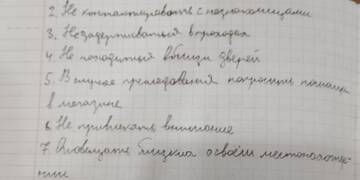 2. Не контактировать с незнакомцами
3. Не задерживаться в проходах
4. Не находиться вблизи дверей
5. В случае преследования попросить помощи
в магазине
6. Не привлекать внимание
7. Оповещать близких о своём местоположе-
нии